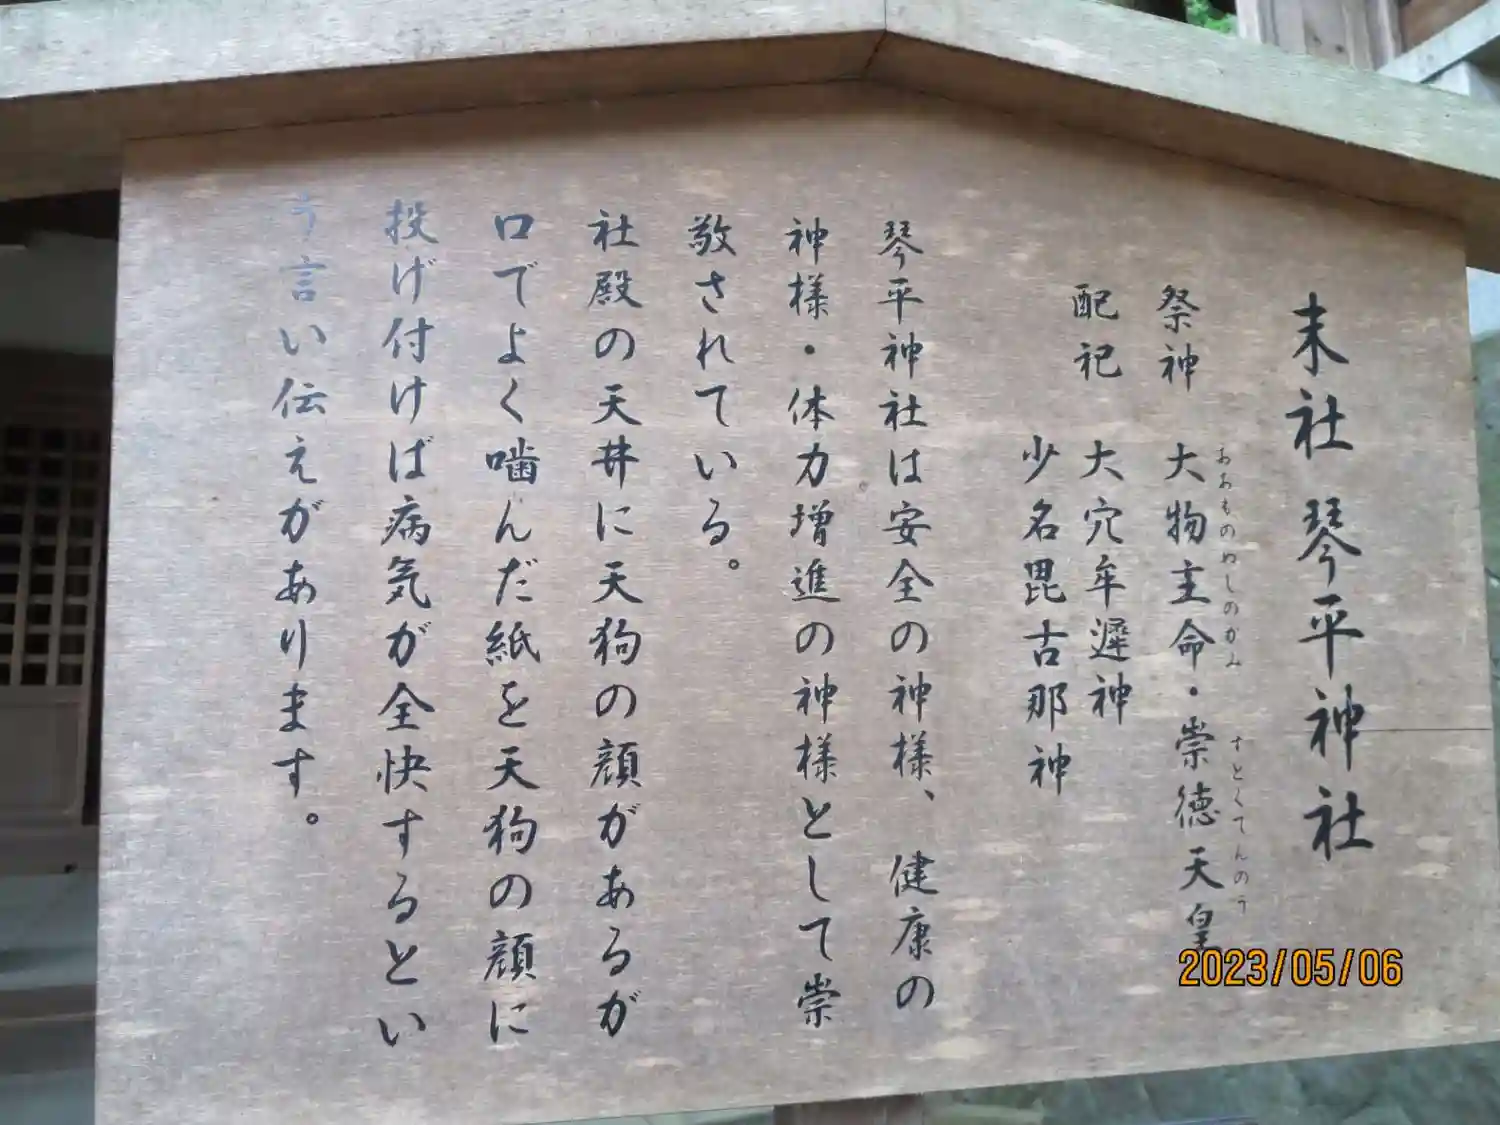 末社 琴平神社
祭神 大物主命・崇徳天皇
おおものぬしのかみ すとくてんのう
配祀 大穴牟遲神
少名毘古那神
琴平神社は安全の神様、健康の
神様・体力増進の神様として崇
敬されている。
社殿の天井に天狗の顔があるが
口でよく噛んだ紙を天狗の顔に
投げ付けば病気が全快するとい
う言い伝えがあります。
2023/05/06